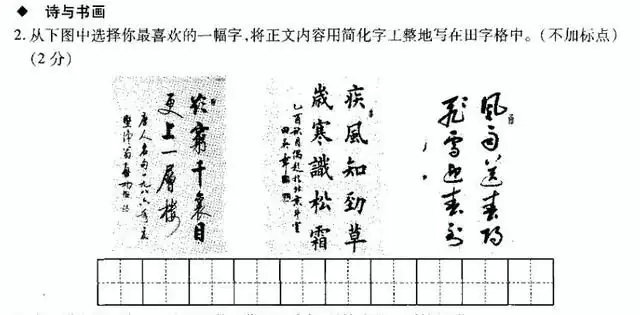 ◆ 诗与书画
2. 从下图中选择你最喜欢的一幅字,将正文内容用简化字工整地写在田字格中。(不加标点)
(2分)
欲窮千里目
更上一層樓
唐人名句一九八六年夏
疾風知勁草
歲寒識松霜
乙酉秋月偶題於北京斗室
田英章
風雨送春歸
飛雪迎春到